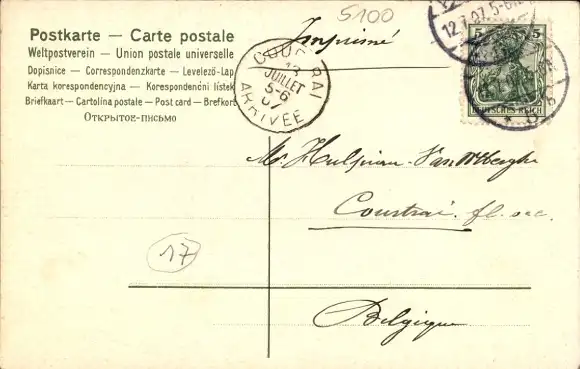 5100
Postkarte — Carte postale
Weltpostverein — Union postale universelle
Dopisnice — Correspondenzkarte — Levelező-Lap
Karta korespondencyjna — Korespondenční lístek
Briefkaart — Cartolina postale — Post card — Brefkort
Открытое-письмо
Imprimé
COURTRAI
13
JUILLET
5-6
07
ARRIVÉE
12.7.07.5-6
5 5
DEUTSCHES REICH
Mr.
Courtrai.
17
Belgique